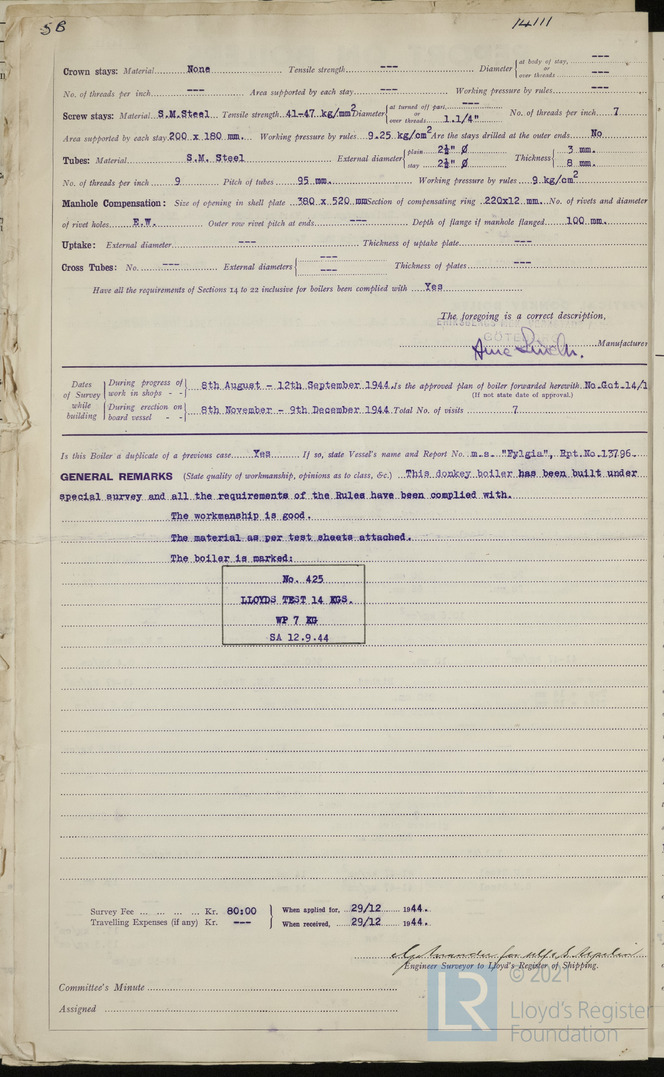 5B
14111
Crown stays: Material None Tensile strength --- Diameter { at body of stay, --- or over threads ---
No. of threads per inch --- Area supported by each stay --- Working pressure by rules ---
Screw stays: Material S.M.Steel Tensile strength 41-47 kg/mm2 Diameter { at turned off part --- or over threads 1.1/4" No. of threads per inch 7
Area supported by each stay 200 x 180 mm. Working pressure by rules 9.25 kg/cm2 Are the stays drilled at the outer ends No
Tubes: Material S.M. Steel External diameter { plain 2½" Ø stay 2½" Ø Thickness { 3 mm. 8 mm.
No. of threads per inch 9 Pitch of tubes 95 mm. Working pressure by rules 9 kg/cm2
Manhole Compensation: Size of opening in shell plate 380 x 520 mm Section of compensating ring 220x12 mm. No. of rivets and diameter
of rivet holes E.W. Outer row rivet pitch at ends --- Depth of flange if manhole flanged 100 mm.
Uptake: External diameter --- Thickness of uptake plate ---
Cross Tubes: No. --- External diameters { --- --- Thickness of plates ---
Have all the requirements of Sections 14 to 22 inclusive for boilers been complied with Yes
The foregoing is a correct description,
Manufacturer
Dates of Survey while building { During progress of work in shops - - } 8th August - 12th September 1944. Is the approved plan of boiler forwarded herewith No.Got.14/1
(If not state date of approval.)
{ During erection on board vessel - - } 8th November - 9th December 1944 Total No. of visits 7
Is this Boiler a duplicate of a previous case Yes If so, state Vessel's name and Report No. m.s. "Fylgia", Rpt.No.13796.
GENERAL REMARKS (State quality of workmanship, opinions as to class, &c.) This donkey boiler has been built under
special survey and all the requirements of the Rules have been complied with.
The workmanship is good.
The material as per test sheets attached.
The boiler is marked:
No. 425
LLOYDS TEST 14 KGS.
WP 7 KG
SA 12.9.44
Survey Fee ... ... ... ... Kr. 80:00 } When applied for, 29/12 1944.
Travelling Expenses (if any) Kr. --- } When received, 29/12 1944.
Engineer Surveyor to Lloyd's Register of Shipping.
Committee's Minute
Assigned
© 2021
LR
Lloyd's Register
Foundation